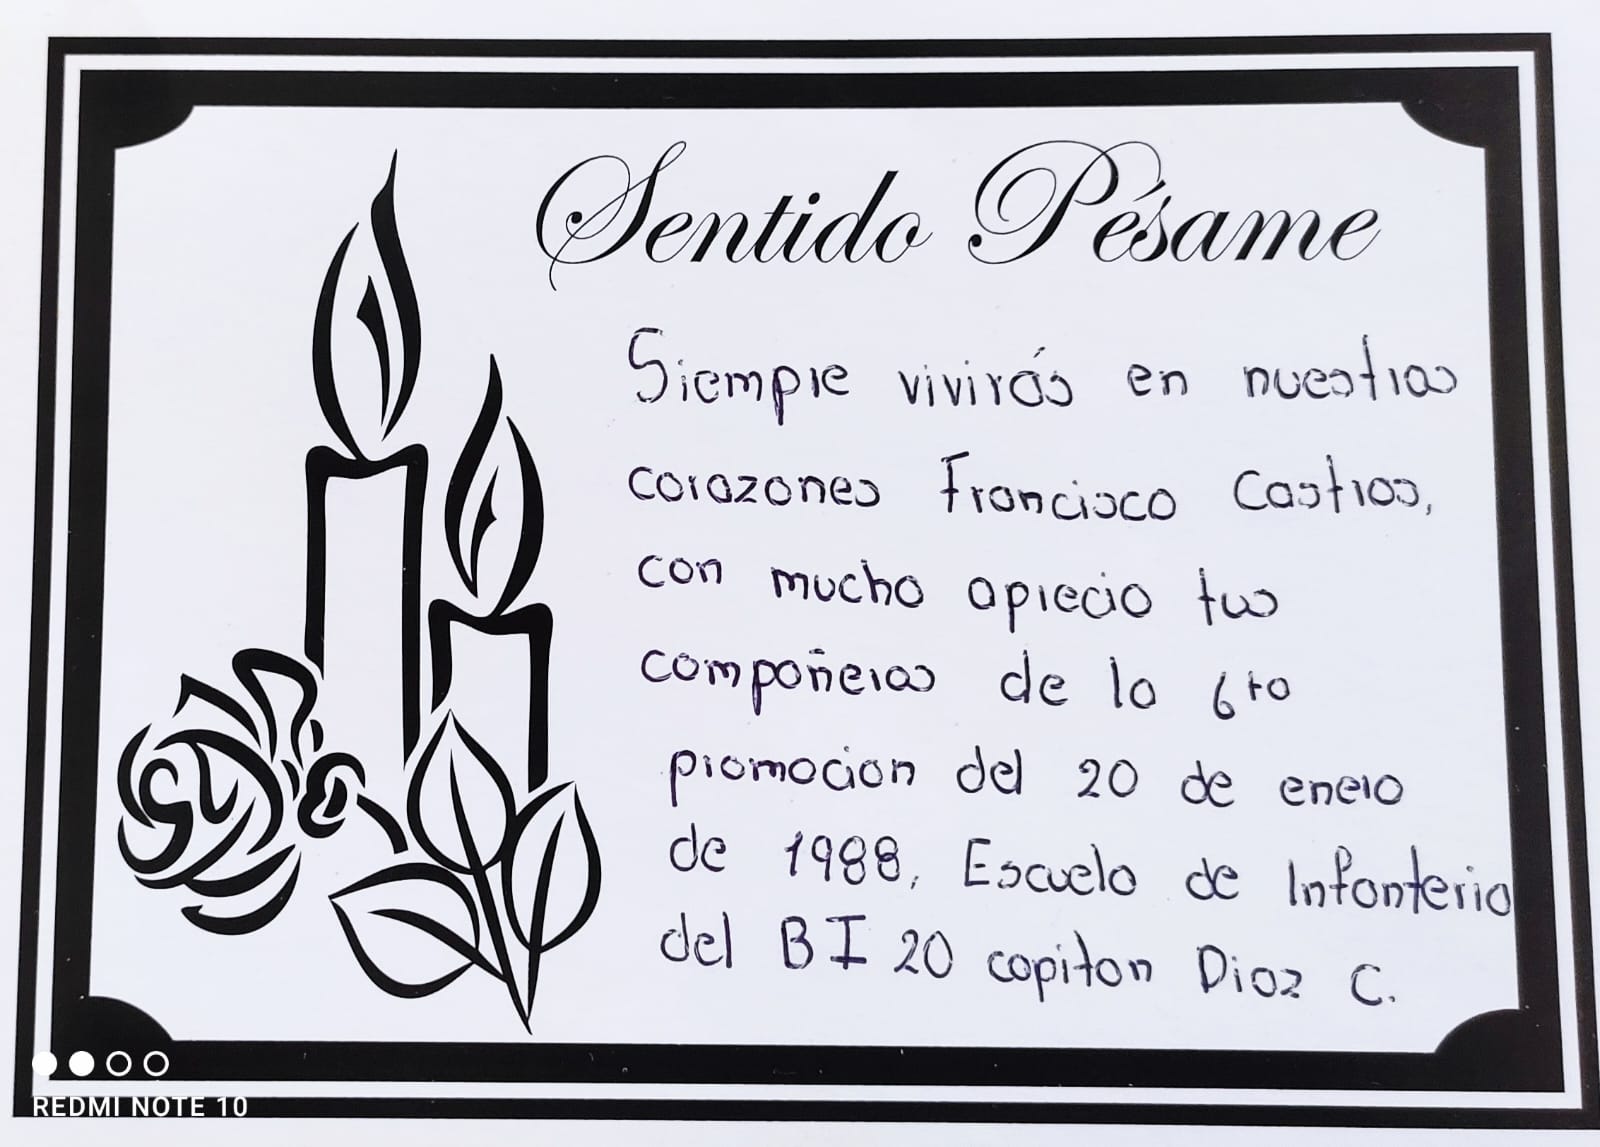 Sentido Pésame
Siempre vivirás en nuestras
corazones Francisco Castros,
con mucho aprecio tus
compañeras de la 6ta
promocion del 20 de enero
de 1988, Escuela de Infanteria
del BI 20 capitan Diaz C.
REDMI NOTE 10